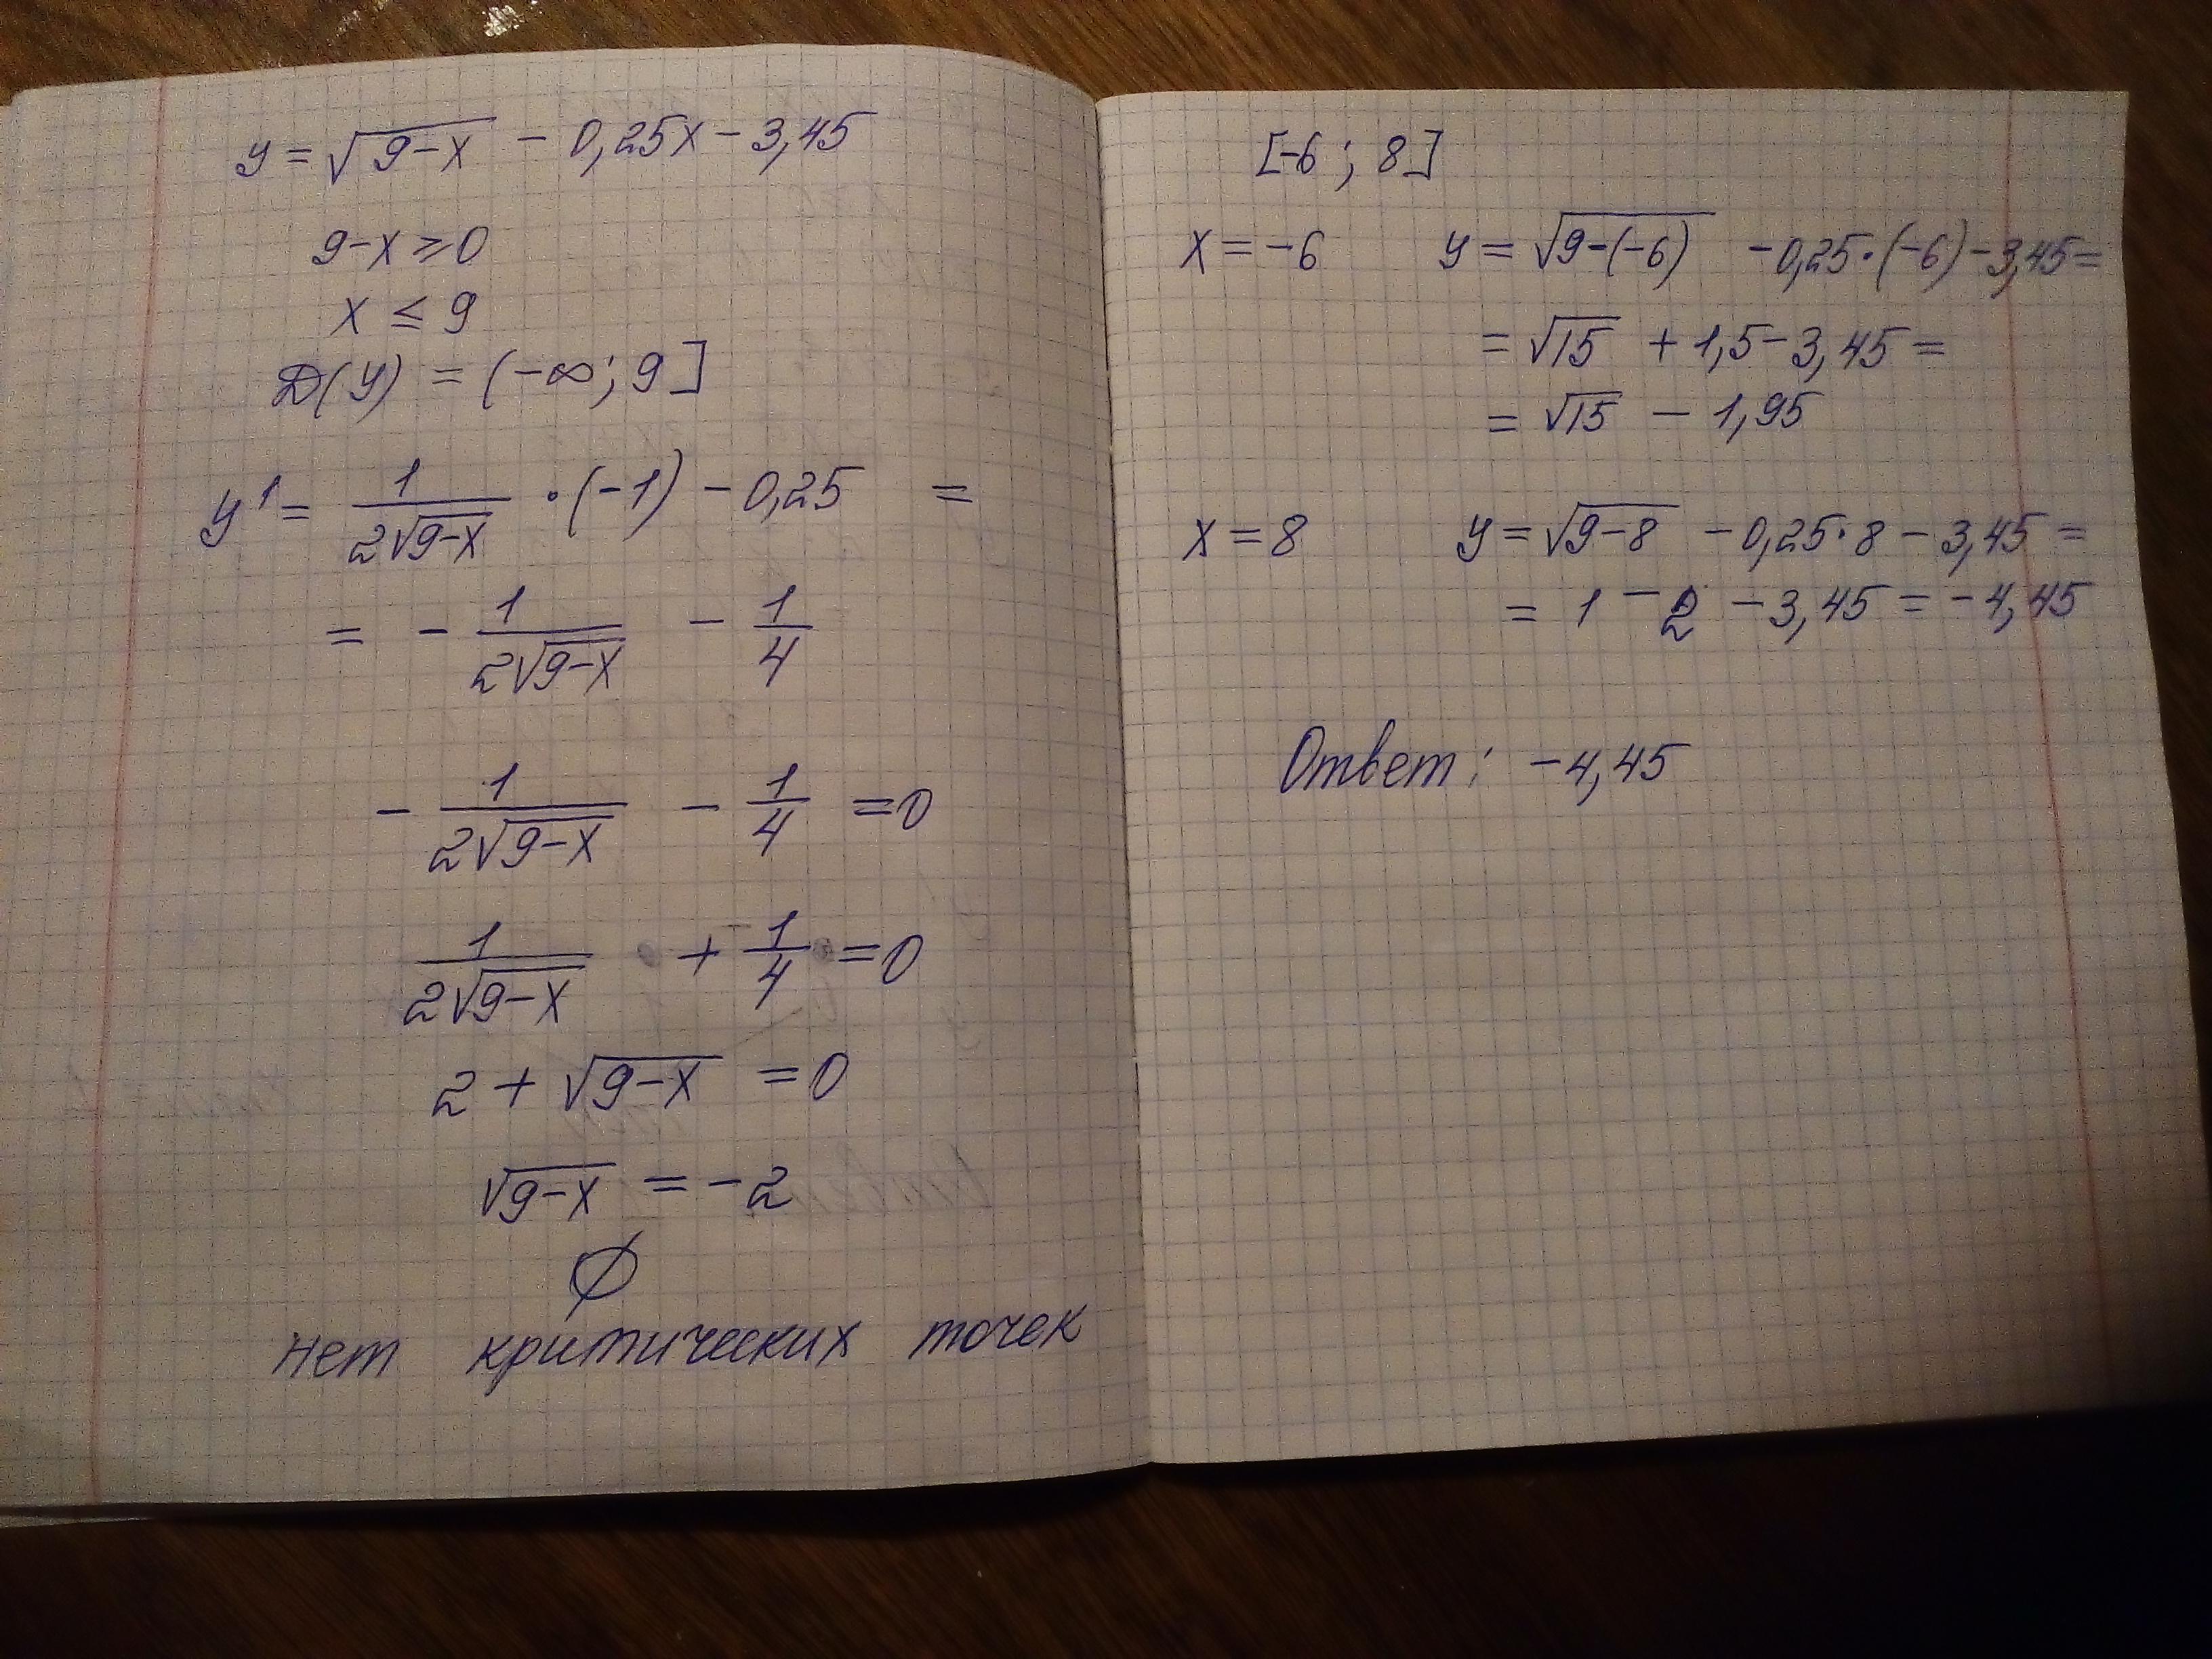 y = √(9-x) - 0,25x - 3,45
9-x ≥ 0
x ≤ 9
D(y) = (-∞; 9]
y' = 1/(2√(9-x)) · (-1) - 0,25 =
= - 1/(2√(9-x)) - 1/4
- 1/(2√(9-x)) - 1/4 = 0
1/(2√(9-x)) + 1/4 = 0
2 + √(9-x) = 0
√(9-x) = -2
∅
нет критических точек
[-6; 8]
x = -6 y = √(9-(-6)) - 0,25·(-6) - 3,45 =
= √15 + 1,5 - 3,45 =
= √15 - 1,95
x = 8 y = √(9-8) - 0,25·8 - 3,45 =
= 1 - 2 - 3,45 = -4,45
Ответ: -4,45